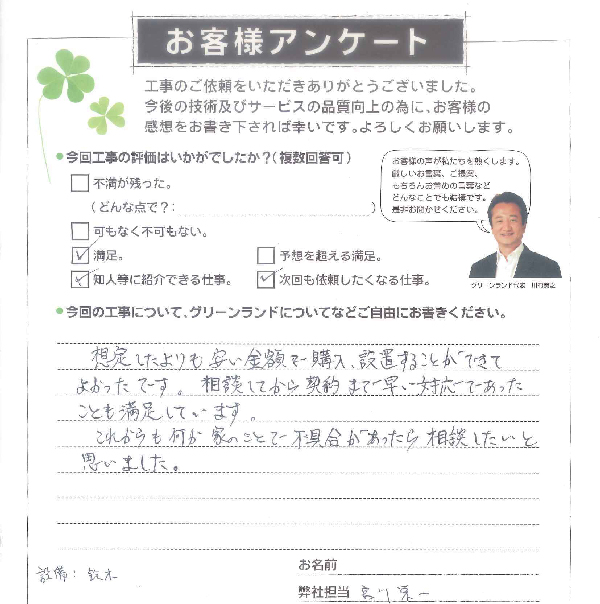 お客様アンケート
工事のご依頼をいただきありがとうございました。
今後の技術及びサービスの品質向上の為に、お客様の
感想をお書き下されば幸いです。よろしくお願いします。
●今回工事の評価はいかがでしたか？(複数回答可)
不満が残った。
(どんな点で？: )
可もなく不可もない。
満足。
予想を超える満足。
知人等に紹介できる仕事。
次回も依頼したくなる仕事。
お客様の声が私たちを熱くします。
厳しいお言葉、ご提案、
もちろんお褒めの言葉など
どんなことでも結構です。
是非お聞かせください。
グリーンランド代表
●今回の工事について、グリーンランドについてなどご自由にお書きください。
想定したよりも安い金額で購入、設置することができて
よかったです。相談してから契約まで早い対応であった
ことも満足しています。
これからも何か家のことで不具合があったら相談したいと
思いました。
設備: 鈴木
お名前
弊社担当